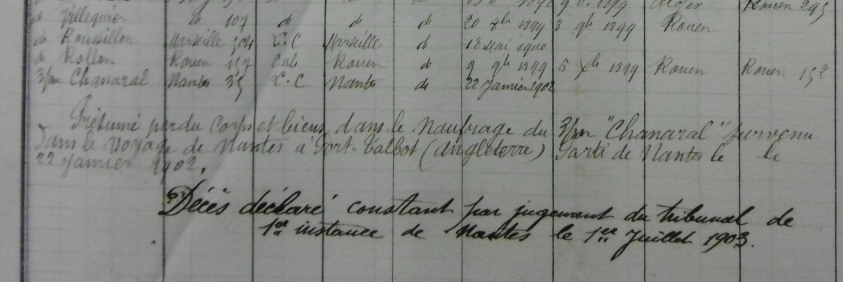 d° 107 d° d° d° 20 8bre 1899 3 9bre 1899 Rouen
d° Roussillon Marseille 504 L.C Marseille d° 18 Mai 1900
d° Rollon Rouen 157 Cab Rouen d° 9 9bre 1899 5 Xbre 1899 Rouen Rouen
3/m Chanaral Nantes 35 L.C Nantes d° 22 Janvier 1902
Présumé perdu Corps et biens dans le Naufrage du 3/m "Chanaral" survenu
dans le voyage de Nantes à Port-Talbot (Angleterre) Parti de Nantes le le
22 Janvier 1902.
Décès déclaré constant par jugement du tribunal de
1ère instance de Nantes le 1er Juillet 1903.